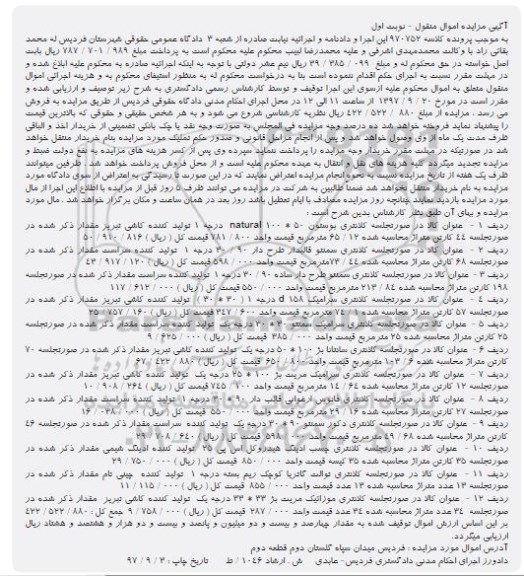 آگهی مزایده اموال منقول - نوبت اول
به موجب پرونده کلاسه ۹۷۰۷۵۲ این اجرا و دادنامه و اجرائیه نیابت صادره از شعبه ۳ دادگاه عمومی حقوقی شهرستان فردیس له محمد
بقائی راد با وکالت محمدمهدی اشرفی و علیه محمدرضا لبیب محکوم علیه محکوم است به پرداخت مبلغ ۹۸۹ / ۷۰۱ / ۷۸۷ ریال بابت
اصل خواسته در حق محکوم له و مبلغ ۰۹۹ / ۳۸۵ / ۳۹ ریال نیم عشر دولتی با توجه به اینکه اجرائیه صادره به محکوم علیه ابلاغ شده و
در مهلت مقرر نسبت به اجرای حکم اقدام ننموده است بنا به درخواست محکوم له به منظور استیفای محکوم به و هزینه اجرائی اموال
منقول متعلق به اموال محکوم علیه ازسوی این اجرا توقیف و توسط کارشناس رسمی دادگستری به شرح زیر توصیف و ارزیابی شده و
مقرر است در مورخ ۲۰ / ۹ / ۱۳۹۷ از ساعت ۱۱ الی ۱۲ در محل اجرای احکام مدنی دادگاه حقوقی فردیس از طریق مزایده به فروش
می رسد . مزایده از مبلغ ۸۸۰ / ۵۲۲ / ۴۲۲ ریال نظریه کارشناسی شروع می شود و به هر شخص حقیقی و حقوقی که بالاترین قیمت
را پیشنهاد نماید فروخته خواهد شد ده درصد وجه مزایده فی المجلس به صورت وجه نقد یا چک بانکی تضمینی از خریدار اخذ و الباقی
ظرف مدت یک ماه از وی وصول خواهد شد و پس از انجام مراحل قانونی و صدور حکم تملیک مورد مزایده بنام خریدار منتقل خواهد
شد در صورتیکه در مهلت مقرر خریدار وجه مزایده را پرداخت ننماید سپرده وی پس از کسر هزینه های مزایده به نفع دولت ضبط و
مزایده تجدید میگردد کلیه هزینه های نقل و انتقال به عهده محکوم علیه است و از محل فروش پرداخت خواهد شد . طرفین میتوانند
ظرف یک هفته از تاریخ مزایده نسبت به نحوه انجام مزایده اعتراض نمایند که در این صورت تا رسیدگی به اعتراض از سوی دادگاه مورد
مزایده به نام خریدار منتقل نخواهد شد ضمنا طالبین به شرکت در مزایده می توانند ظرف ۵ روز قبل از مزایده با اطلاع این اجرا از مال
مورد مزایده بازدید نمایند چنانچه روز مزایده مصادف با ایام تعطیل باشد روز بعد در همان ساعت و مکان برگزار خواهد شد . مال مورد
مزایده و بهای آن طبق نظر کارشناس بدین شرح است :
ردیف ۱ - عنوان کالا در صورتجلسه کلانتری بوستون ۵۰ * ۱۰۰ natural درجه ۱ تولید کننده کاشی تبریز مقدار ذکر شده در
صورتجلسه ۴۴ کارتن متراژ محاسبه شده ۱۲ / ۶۵ مترمربع قیمت واحد ۸۰۰ / ۷۸۱ قیمت کل ( ریال ) ۸۱۶ / ۹۱۰ / ۵۰
ردیف ۲ - عنوان کالا در صورتجلسه کلانتری سمنتو قالبدار طرح دار ۹۰ * ۳۰ درجه ۱ تولید کننده سراست مقدار ذکر شده در
صورتجلسه ۶۸ کارتن متراژ محاسبه شده ۴۴ / ۷۳ مترمربع قیمت واحد ۰۰۰ / ۵۹۸ قیمت کل ( ریال ) ۱۲۰ / ۹۱۷ / ۴۳
ردیف ۳ - عنوان کالا در صورتجلسه کلانتری سمنتو طرح دار ساده ۹۰ / ۳۰ درجه ۱ تولید کننده سراست مقدار ذکر شده در صورتجلسه
۱۹۸ کارتن متراژ محاسبه شده ۸۴ / ۲۱۳ مترمربع قیمت واحد ۰۰۰ / ۵۵۰ قیمت کل ( ریال ) ۰۰۰ / ۶۱۲ / ۱۱۷
ردیف ۴ - عنوان کالا در صورتجلسه کلانتری سرامیک ۱۵۸ d درجه ۱ ( ۳۰ * ۳۰ ) تولید کننده کاشی تبریز مقدار ذکر شده در
صورتجلسه ۵۷ کارتن متراژ محاسبه شده ۱ / ۷۴ مترمربع قیمت واحد ۶۰۰ / ۳۴۷ قیمت کل ( ریال ) ۱۶۰ / ۷۵۷ / ۲۵
ردیف ۵ - عنوان کالا در صورتجلسه کلانتری سرامیک سمنتو ۳۰ * ۳۰ درجه یک تولید کننده سراست مقدار ذکر شده در صورتجلسه
۲۵ کارتن متراژ محاسبه شده ۲۵ مترمربع قیمت واحد ۰۰۰ / ۳۸۵ قیمت کل ( ریال ) ۰۰۰ / ۶۲۵ / ۹
ردیف ۶ - عنوان کالا در صورتجلسه کلانتری سانتانا بژ ۱۰۰ * ۵۰ درجه یک تولید کننده کاشی تبریز مقدار ذکر شده در صورتجلسه ۷۰
کارتن متراژ محاسبه شده ۶ / ۱۰۳ مترمربع قیمت واحد ۸۰۰ / ۶۵۰ قیمت کل ( ریال ) ۸۸۰ / ۴۲۲ / ۶۷
ردیف ۷ - عنوان کالا در صورتجلسه کلانتری سرامیک مریت بژ ۱۰۰ * ۲۵ درجه یک تولید کننده کاشی تبریز مقدار ذکر شده در
صورتجلسه ۱۲ کارتن متراژ محاسبه شده ۶۴ / ۱۴ مترمربع قیمت واحد ۱۰۰ / ۷۴۵ قیمت کل ( ریال ) ۲۶۴ / ۹۰۸ / ۱۰
ردیف ۸ - عنوان کالا در صورتجلسه کلانتری فانوس ارغوانی قالب دار ۹۰ * ۳۰ درجه ۱۱ تولید کننده سراست مقدار ذکر شده در
صورتجلسه ۲۷ کارتن متراژ محاسبه شده ۱۶ / ۲۹ مترمربع قیمت واحد ۰۰۰ / ۵۵۰ قیمت کل ( ریال ) ۰۰۰ / ۰۳۸ / ۱۶
ردیف ۹ - عنوان کالا در صورتجلسه کلانتری دکور سمنتو ۹۰ * ۳۰ درجه یک تولید کننده سراست مقدار ذکر شده در صورتجلسه ۴۶
کارتن متراژ محاسبه شده ۶۸ / ۴۹ مترمربع قیمت واحد ۰۰۰ / ۵۹۸ قیمت کل ( ریال ) ۶۴۰ / ۷۰۸ / ۲۹
ردیف ۱۰ - عنوان کالا در صورتجلسه کلانتری چسب ادتینگ هیدروکل اس پی ۲۵ تولید کننده ادتینگ شیمی مقدار ذکر شده در
صورتجلسه ۳۵ کارتن متراژ محاسبه شده ۳۵ کیسه قیمت واحد ۰۰۰ / ۸۵۰ قیمت کل ( ریال ) ۰۰۰ / ۷۵۰ / ۲۹
ردیف ۱۱ - عنوان کالا در صورتجلسه کلانتری توالت گاتریا کوچک ریم بسته درجه ۱ تولید کننده چینی تام مقدار ذکر شده در
صورتجلسه ۱۳ عدد متراژ محاسبه شده ۱۳ عدد قیمت واحد ۰۰۰ / ۸۵۵ قیمت کل ( ریال ) ۰۰۰ / ۱۱۵ / ۱۱
ردیف ۱۲ - عنوان کالا در صورتجلسه کلانتری موزائیک مریت بژ ۳۳ * ۳۳ درجه یک تولید کننده کاشی تبریز مقدار ذکر شده در
صورتجلسه ۳۴ عدد متراژ محاسبه شده ۳۴ عدد قیمت واحد ۰۰۰ / ۲۸۷ قیمت کل ( ریال ) ۰۰۰ / ۷۵۸ / ۹ جمع کل : ۸۸۰ / ۵۲۲ / ۴۲۲
بر این اساس ارزش اموال توقیف شده به مقدار چهارصد و بیست و دو میلیون و پانصد و بیست و دو هزار و هشتصد و هشتاد ریال
ارزیابی میگردد.
آدرس اموال مورد مزایده : فردیس میدان سپاه گلستان دوم قطعه دوم
دادورز اجرای احکام مدنی دادگستری فردیس- عابدی ش . ارشاد ۱۰۴۶ / ط تاریخ چاپ : ۳ / ۹ / ۹۷